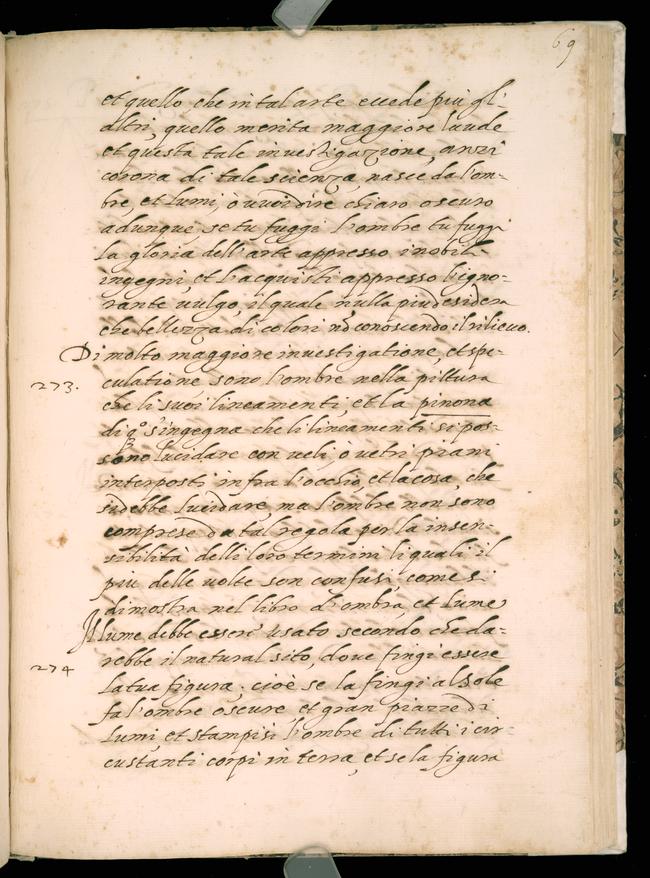 69
et quello che in tal arte eccede piu gl'
altri, quello merita maggiore laude
et questa tale investigazione, anzi
corona di tale scienza, nasce da l'om=
bre, et lumi, ò vuoi dire chiaro oscuro
adunque, se tu fuggi l'ombre tu fuggi
la gloria dell'arte appresso i nobili
ingegni, et l'acquisti appresso l'igno=
rante vulgo, il quale nulla piu desidera
che bellezza di colori nō conoscendo il rilievo.
Di molto maggiore investigatione, et spe=
273.
culatione sono l'ombre nella pittura
che li suoi lineamenti, et la pinona
di qº s'ingegna che li lineamenti si pos=
sono lucidare con veli, ò vetri piani
interposti infra l'occhio, et la cosa, che
si debbe lucidare, ma l'ombre non sono
comprese da tal regola per la insen=
sibilità delli loro termini li quali il
piu delle volte son confusi, come si
dimostra nel libro d'ombra, et lume
Il lume debbe essere usato secondo, che da=
274
rebbe il natural sito, dove fingi essere
la tua figura, cioè se la fingi al sole
fa l'ombre oscure, et gran piazze di
lumi, et stampisi l'ombre di tutti i cir=
custanti corpi in terra, et se la figura